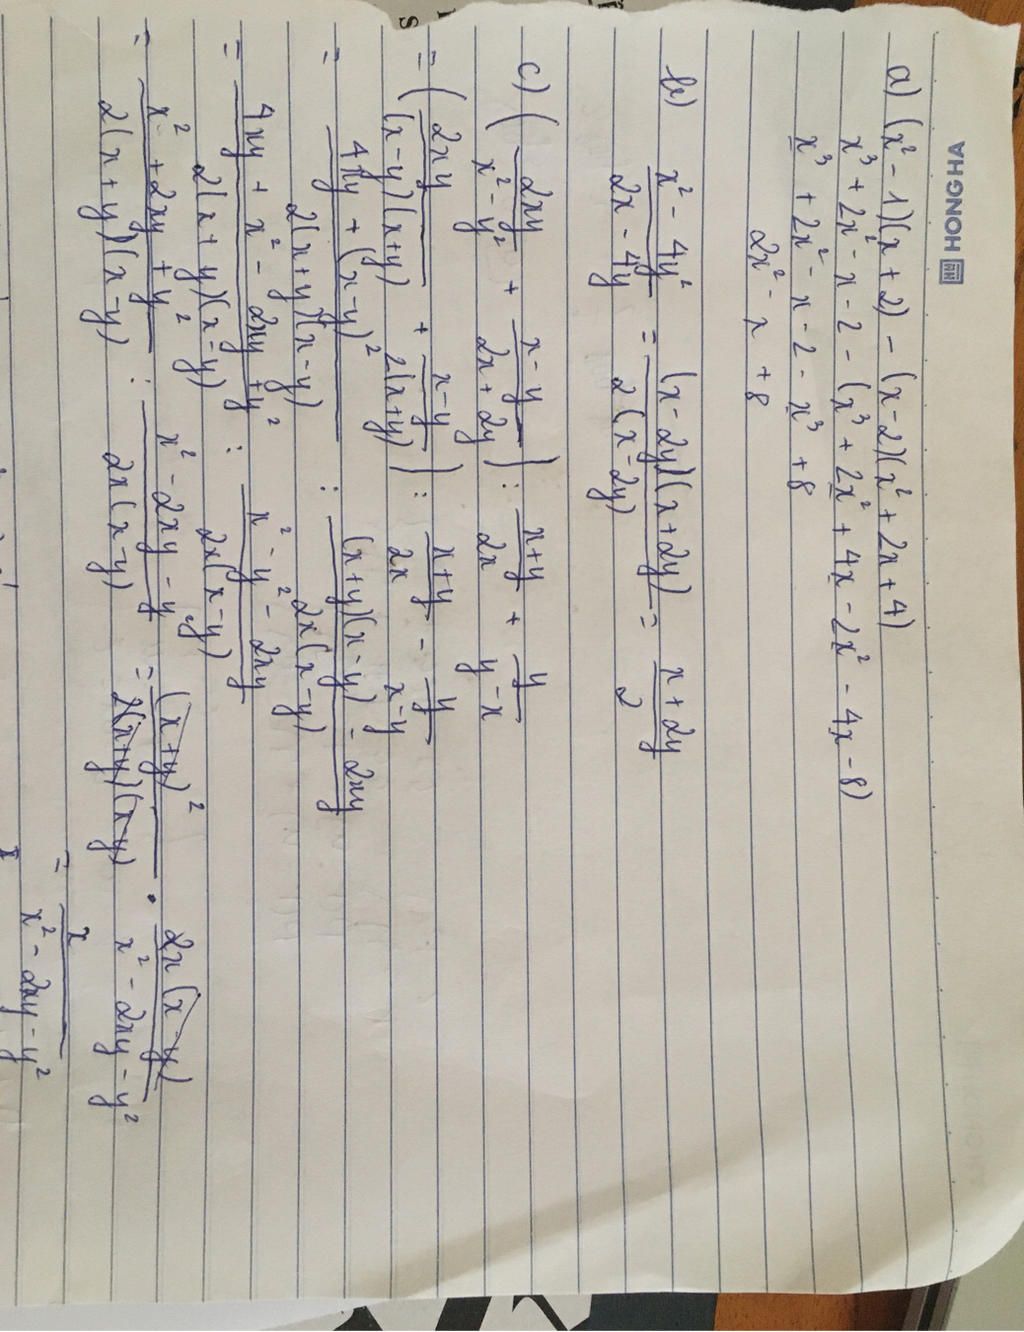 HONGHA
a) (x² - 1)(x + 2) - (x - 2)(x² + 2x + 4)
x³ + 2x² - x - 2 - (x³ + 2x² + 4x - 2x² - 4x - 8)
x³ + 2x² - x - 2 - x³ + 8
2x² - x + 8
b) \frac{x² - 4y²}{2x - 4y} = \frac{(x - 2y)(x + 2y)}{2(x - 2y)} = \frac{x + 2y}{2}
c) ( \frac{2xy}{x² - y²} + \frac{x - y}{2x + 2y} ) : \frac{x + y}{2x} + \frac{y}{y - x}
= ( \frac{2xy}{(x - y)(x + y)} + \frac{x - y}{2(x + y)} ) : \frac{x + y}{2x} - \frac{y}{x - y}
= \frac{4xy + (x - y)²}{2(x + y)(x - y)} : \frac{(x + y)(x - y) - 2xy}{2x(x - y)}
= \frac{4xy + x² - 2xy + y²}{2(x + y)(x - y)} : \frac{x² - y² - 2xy}{2x(x - y)}
= \frac{x² + 2xy + y²}{2(x + y)(x - y)} : \frac{x² - 2xy - y²}{2x(x - y)} = \frac{(x + y)²}{2(x + y)(x - y)} . \frac{2x(x - y)}{x² - 2xy - y²}
= \frac{x}{x² - 2xy - y²}